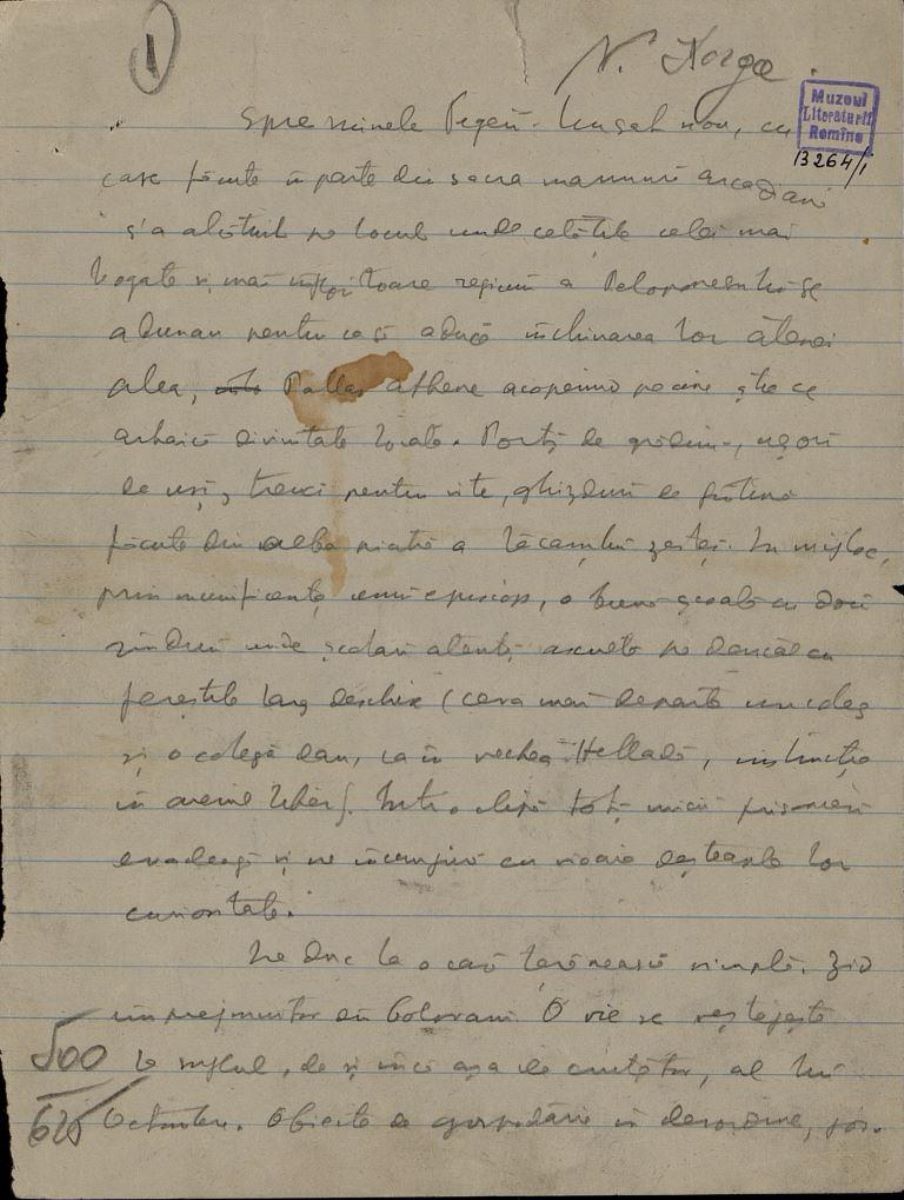 1
N. Iorga.
Muzeul
Literaturii
Romîne
13264/1
Spre ruinele Tegeii. Un sat nou, cu
case făcute în parte din sacra marmură arcadiană
s'a alcătuit pe locul unde cetățile celei mai
bogate și mai înfloritoare regiuni a Peloponesului se
adunau pentru ca să aducă închinarea lor Atenei
Alea, Pallas Athene acoperind pe cine știe ce
arhaică divinitate locală. Porți de grădini, ușori
de uși, treuci pentru vite, ghizduri de fîntînă
făcute din alba piatră a lăcașului zeiței. În mijloc,
prin munificența unui episcop, o bună școală cu două
rînduri unde școlari atenți ascultă pe dascăl cu
fereștile larg deschise (ceva mai departe un coleg
și o colegă dau, ca în vechea Helladă, instrucția
în aer liber). Într'o clipă toți micii prisonieri
evadează și ne încunjură cu vioaia deșteapta lor
curiositate.
Ne duc la o casă țerănească simplă. Zid
împrejmuitor din bolovani. O vie se veștejește
la suflul, de și încă așa de cruțător, al lui
Octombre. Obiecte de gospodărie în desordine,
500
625